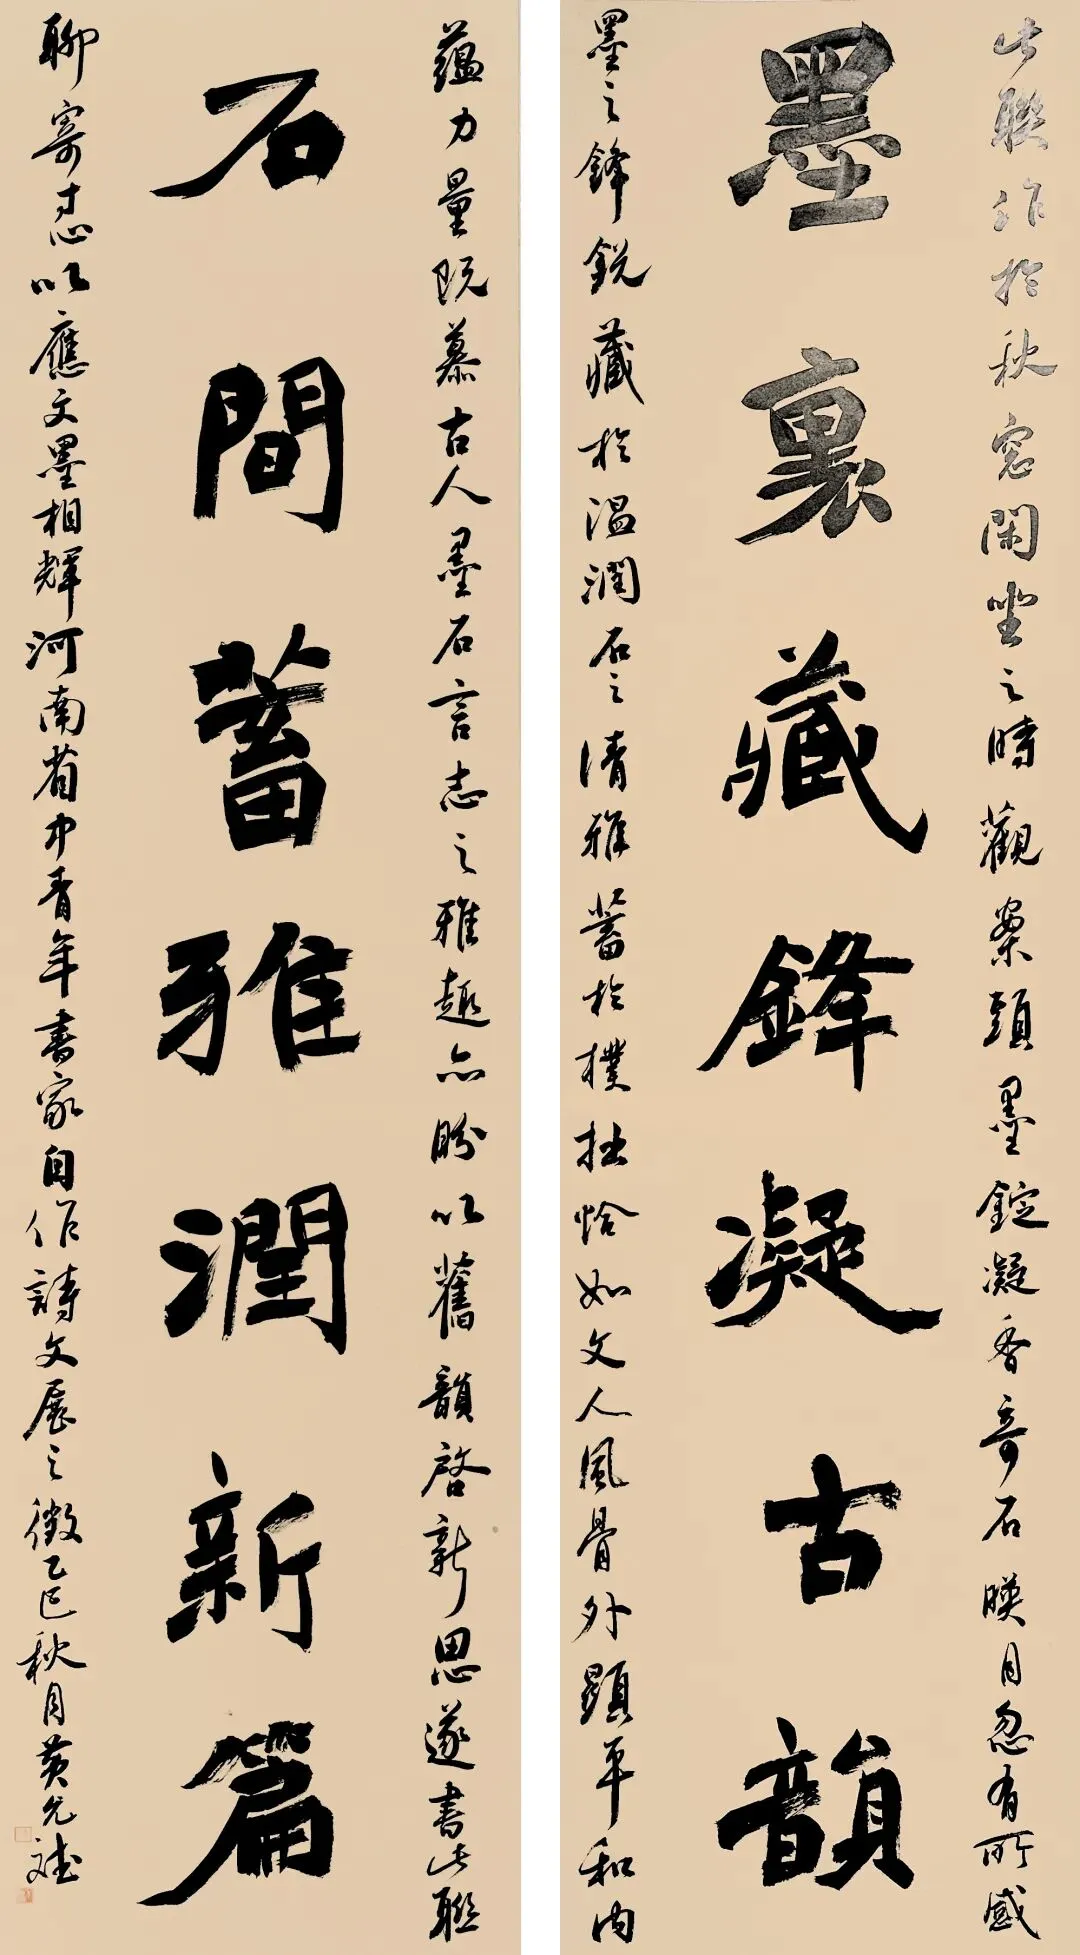 此聯作於秋窓閑坐之時觀案頭墨錠凝香奇石暎月忽有所感
墨裏藏鋒凝古韻
墨之鋒銳藏於温潤石之清雅蓄於樸拙恰如文人風骨外顯平和内
藴力量既慕古人墨石言志之雅趣亦盼以舊韻啓新思遂書此聯
石間蓄雅潤新篇
聊寄寸心以應文墨相輝河南省中青年書家自作詩文展之徵乙巳秋月黄允斌